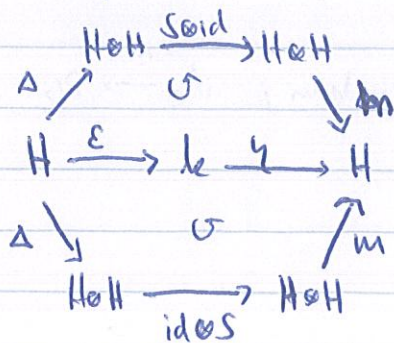 H⊗H S⊗id H⊗H
Δ ↺ m
H ε k η H
Δ ↺ m
H⊗H id⊗S H⊗H